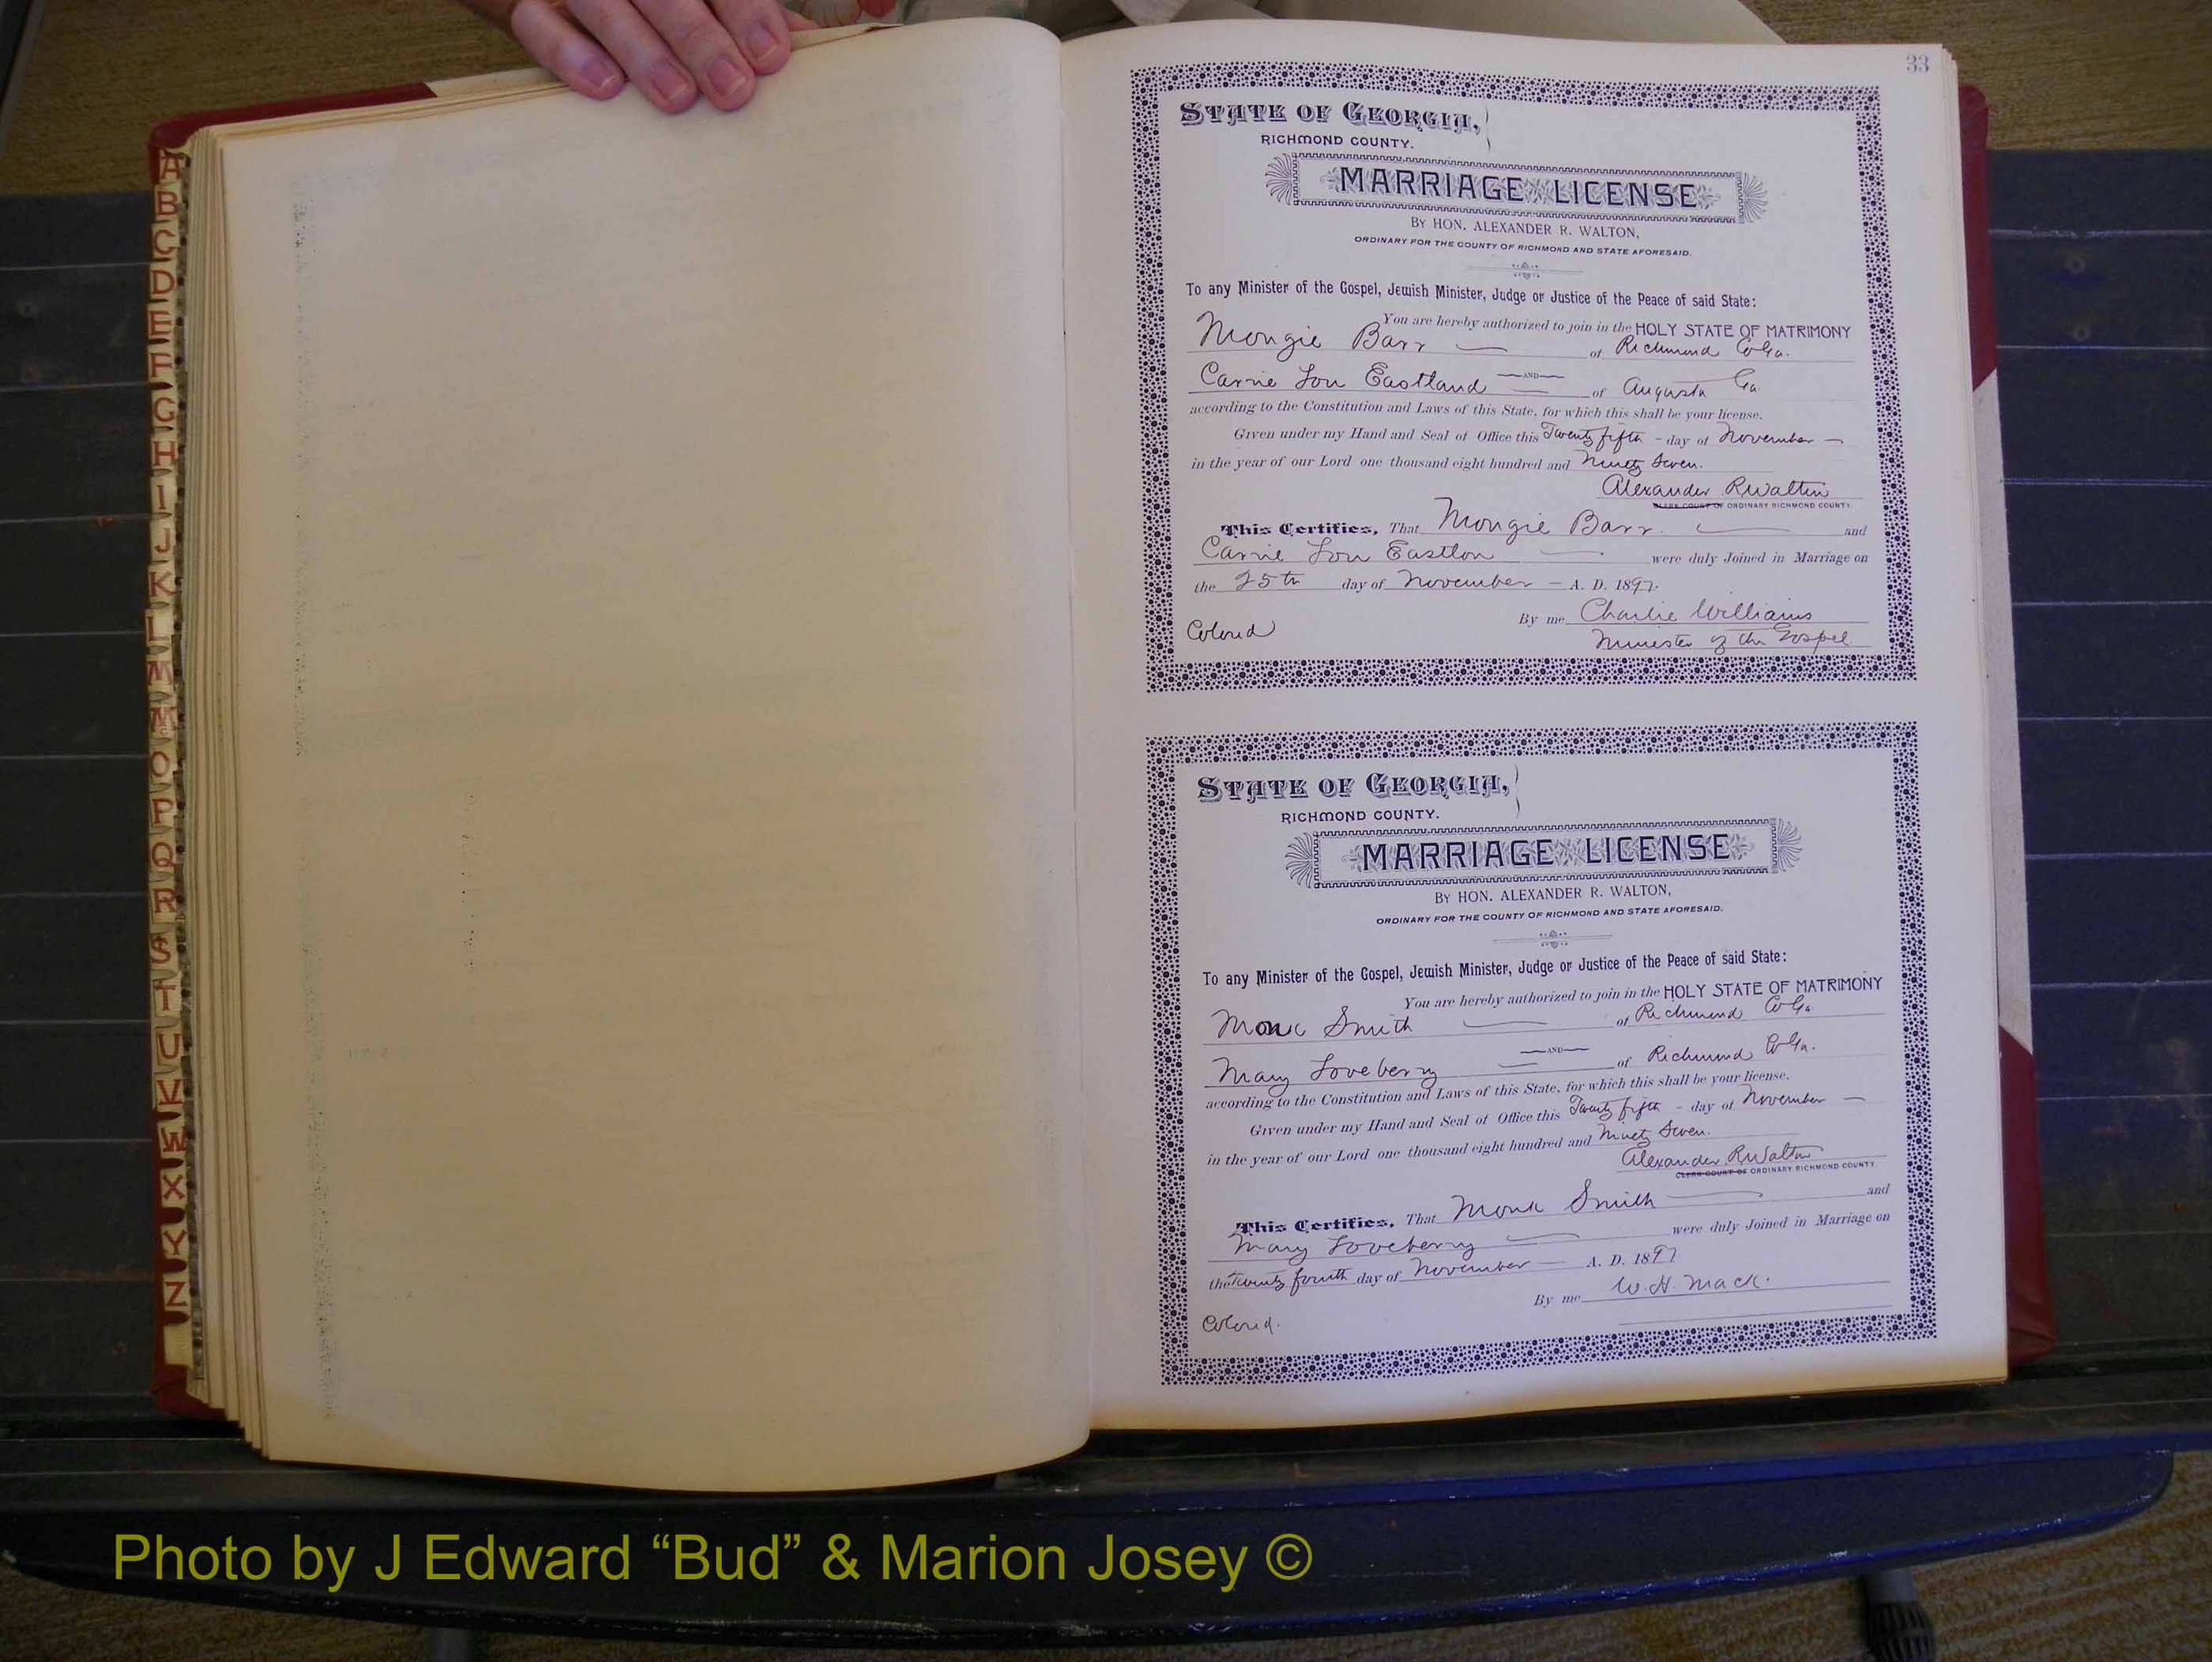 A
B
C
D
E
F
G
H
I
J
K
L
M
Mc
O
P
Q
R
S
T
U
V
W
X
Y
Z
33
STATE OF GEORGIA,
RICHMOND COUNTY.
MARRIAGE LICENSE
BY HON. ALEXANDER R. WALTON,
ORDINARY FOR THE COUNTY OF RICHMOND AND STATE AFORESAID.
To any Minister of the Gospel, Jewish Minister, Judge or Justice of the Peace of said State:
You are hereby authorized to join in the HOLY STATE OF MATRIMONY
Mongie Barr — of Richmond Co Ga.
—AND—
Carrie Lou Eastland = of Augusta Ga
according to the Constitution and Laws of this State, for which this shall be your license.
Given under my Hand and Seal of Office this Twenty fifth - day of November —
in the year of our Lord one thousand eight hundred and Ninety Seven.
Alexander R Walton
CLERK COURT OF ORDINARY RICHMOND COUNTY.
This Certifies, That Mongie Barr. — and
Carrie Lou Eastlon — were duly Joined in Marriage on
the 25th day of November — A. D. 1897.
By me Charlie Williams
Colored
Minister of the Gospel.
STATE OF GEORGIA,
RICHMOND COUNTY.
MARRIAGE LICENSE
BY HON. ALEXANDER R. WALTON,
ORDINARY FOR THE COUNTY OF RICHMOND AND STATE AFORESAID.
To any Minister of the Gospel, Jewish Minister, Judge or Justice of the Peace of said State:
You are hereby authorized to join in the HOLY STATE OF MATRIMONY
Smith — of Richmond Co Ga.
—AND—
Mary Loveberry = of Richmond Co Ga.
according to the Constitution and Laws of this State, for which this shall be your license.
Given under my Hand and Seal of Office this Twenty fifth - day of November —
in the year of our Lord one thousand eight hundred and Ninety Seven.
Alexander R Walton
CLERK COURT OF ORDINARY RICHMOND COUNTY
This Certifies, That Monk Smith — and
Mary Loveberry — were duly Joined in Marriage on
the twenty fourth day of November — A. D. 1897
By me W. H. Mack.
Colored.
Photo by J Edward “Bud” & Marion Josey ©